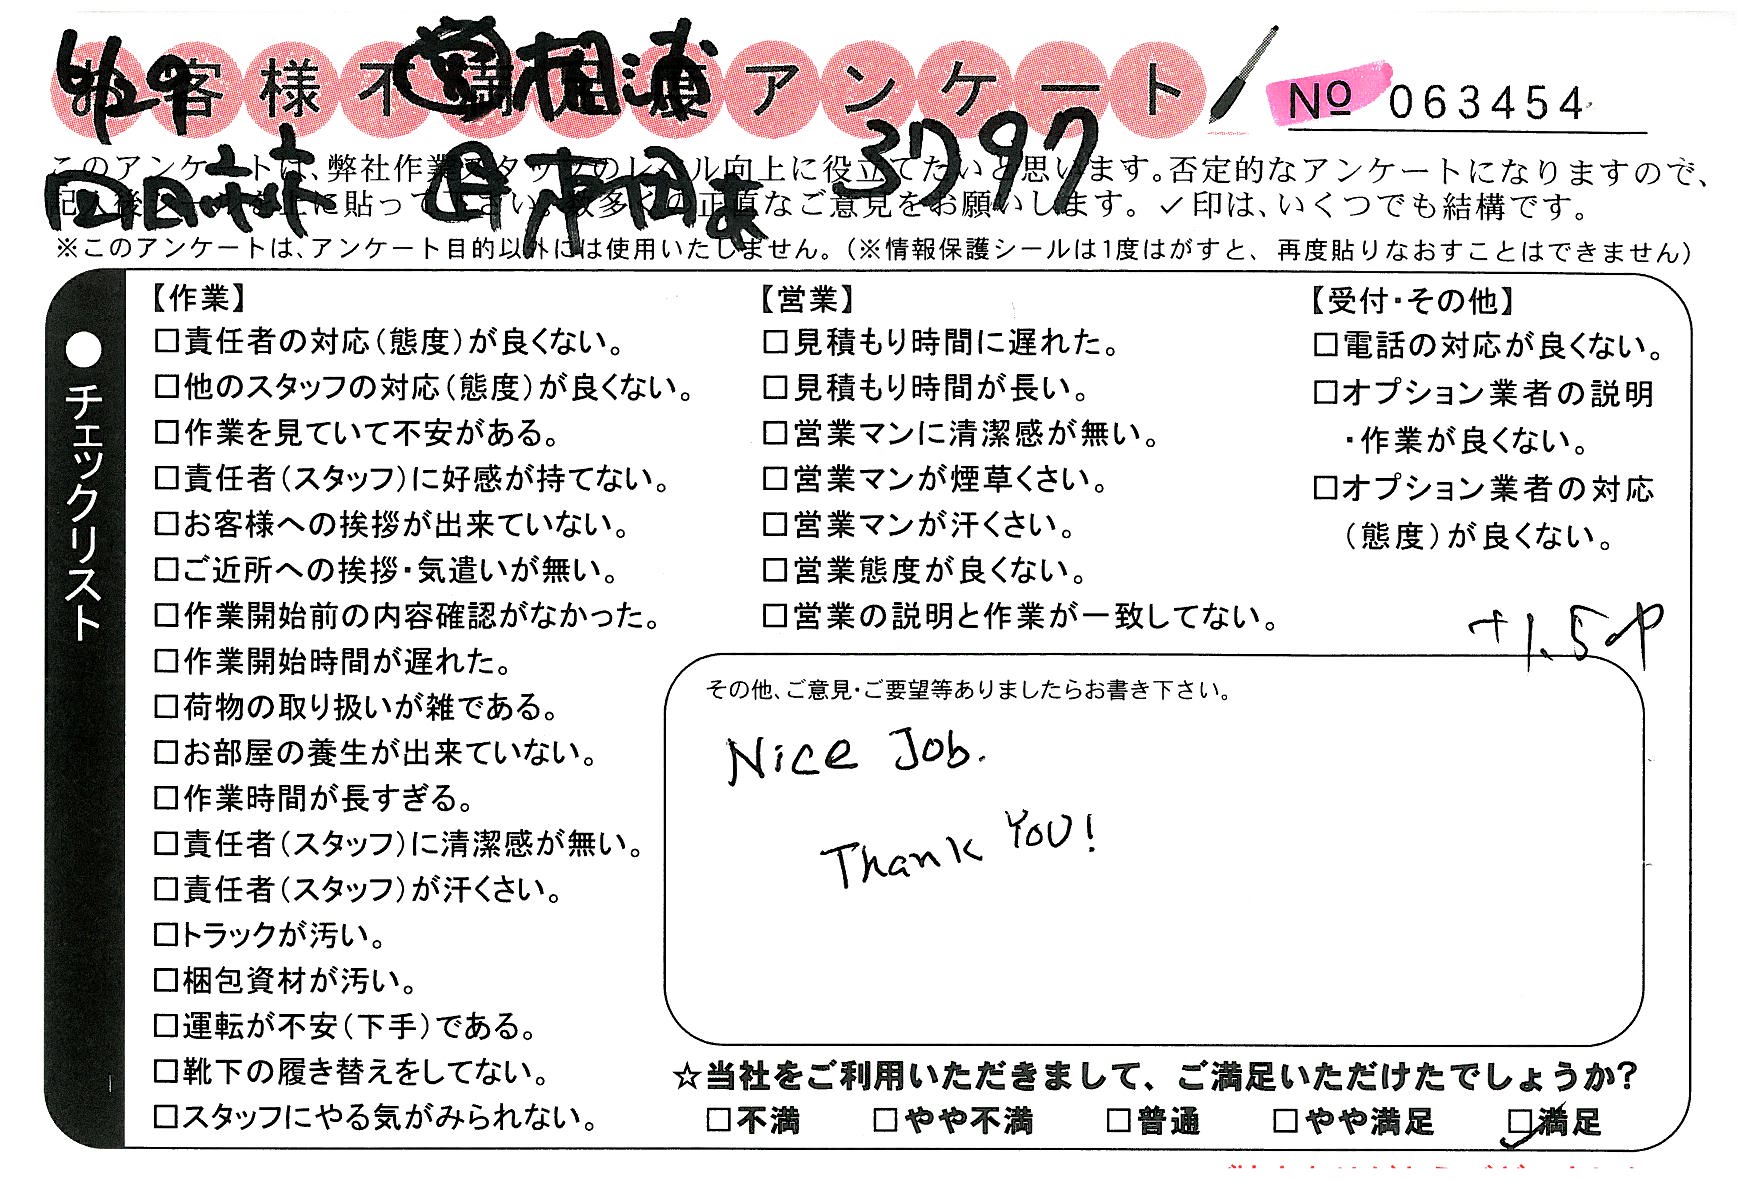 お客様不満足度アンケート No 063454
6/29 営 相浦
3797
このアンケートは、弊社作業スタッフのレベル向上に役立てたいと思います。否定的なアンケートになりますので、
に貼って 正直なご意見をお願いします。✓印は、いくつでも結構です。
※このアンケートは、アンケート目的以外には使用いたしません。(※情報保護シールは1度はがすと、再度貼りなおすことはできません)
●チェックリスト
【作業】
□責任者の対応(態度)が良くない。
□他のスタッフの対応(態度)が良くない。
□作業を見ていて不安がある。
□責任者(スタッフ)に好感が持てない。
□お客様への挨拶が出来ていない。
□ご近所への挨拶・気遣いが無い。
□作業開始前の内容確認がなかった。
□作業開始時間が遅れた。
□荷物の取り扱いが雑である。
□お部屋の養生が出来ていない。
□作業時間が長すぎる。
□責任者(スタッフ)に清潔感が無い。
□責任者(スタッフ)が汗くさい。
□トラックが汚い。
□梱包資材が汚い。
□運転が不安(下手)である。
□靴下の履き替えをしてない。
□スタッフにやる気がみられない。
【営業】
□見積もり時間に遅れた。
□見積もり時間が長い。
□営業マンに清潔感が無い。
□営業マンが煙草くさい。
□営業マンが汗くさい。
□営業態度が良くない。
□営業の説明と作業が一致してない。
【受付・その他】
□電話の対応が良くない。
□オプション業者の説明
・作業が良くない。
□オプション業者の対応
(態度)が良くない。
+1.5P
その他、ご意見・ご要望等ありましたらお書き下さい。
Nice Job.
Thank You!
☆当社をご利用いただきまして、ご満足いただけたでしょうか?
□不満 □やや不満 □普通 □やや満足 □満足